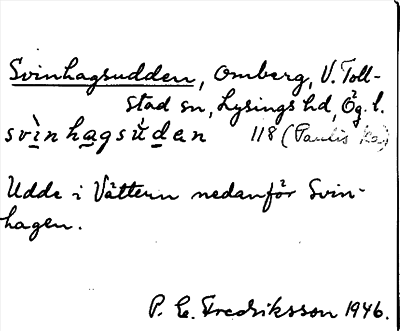 Svinhagsudden, Omberg, V. Toll-
stad sn, Lysings hd, Ög. l.
svìnhagsúden 118 (Paulis
Udde i Vättern nedanför Svin-
hagen.
P. E. Fredriksson 1946.